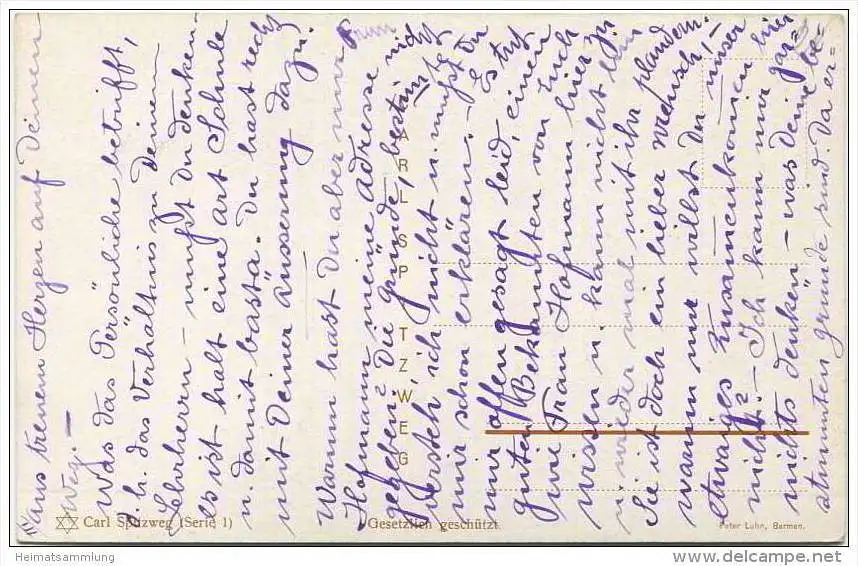 IV aus treuem Herzen auf Deinen
Weg. —
Was das Persönliche betrifft,
d. h. das Verhältnis zu Deinem
Lehrherrn — mußt Du denken —
es ist halt eine art Schule
u. damit basta. Du hast recht
mit Deiner äusserung dazu.
Warum hast Du aber nur Frau
Hofmann meine Adresse nicht
gegeben? Die gründe, bestimmt
versteh' ich nicht u. mußt Du
mir schon erklären. — Es tut
mir offen gesagt leid, einen
guten Bekannten von Euch
wie Frau Hofmann hier zu
wissen u. kann nicht hin
u. wieder mal mit ihr plaudern.
Sie ist doch ein lieber Mensch, —
warum nur willst Du unser
etwaiges Zusammenkommen hier
nicht? — Ich kann mir gar
nichts denken — was Deine be-
stimmten gründe sind. Da er=
CARL SPITZWEG
Carl Spitzweg (Serie 1)
Gesetzlich geschützt
Peter Luhn, Barmen.
Heimatsammlung
www.delcampe.net